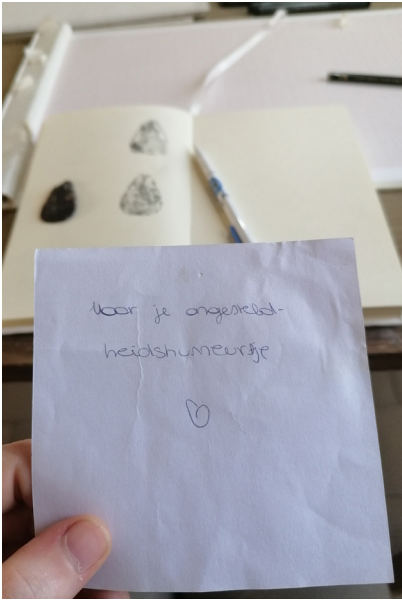 Voor je ongesteld-
heidshumeurtje